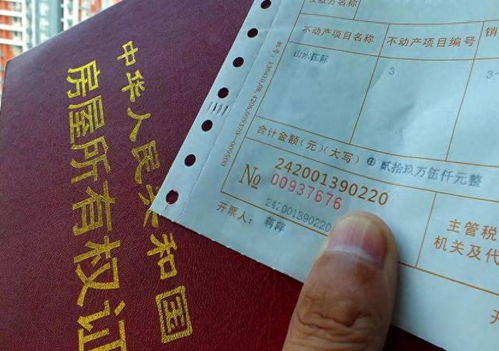 中华人民共和国
房屋所有权证
不动产项目名称
不动产项目编号
销
3
3
合计金额(元)(大写)
贰拾玖万伍仟元整
242001390220
№ 00937676
242001390220
开票人:
主管税
机关及代
开